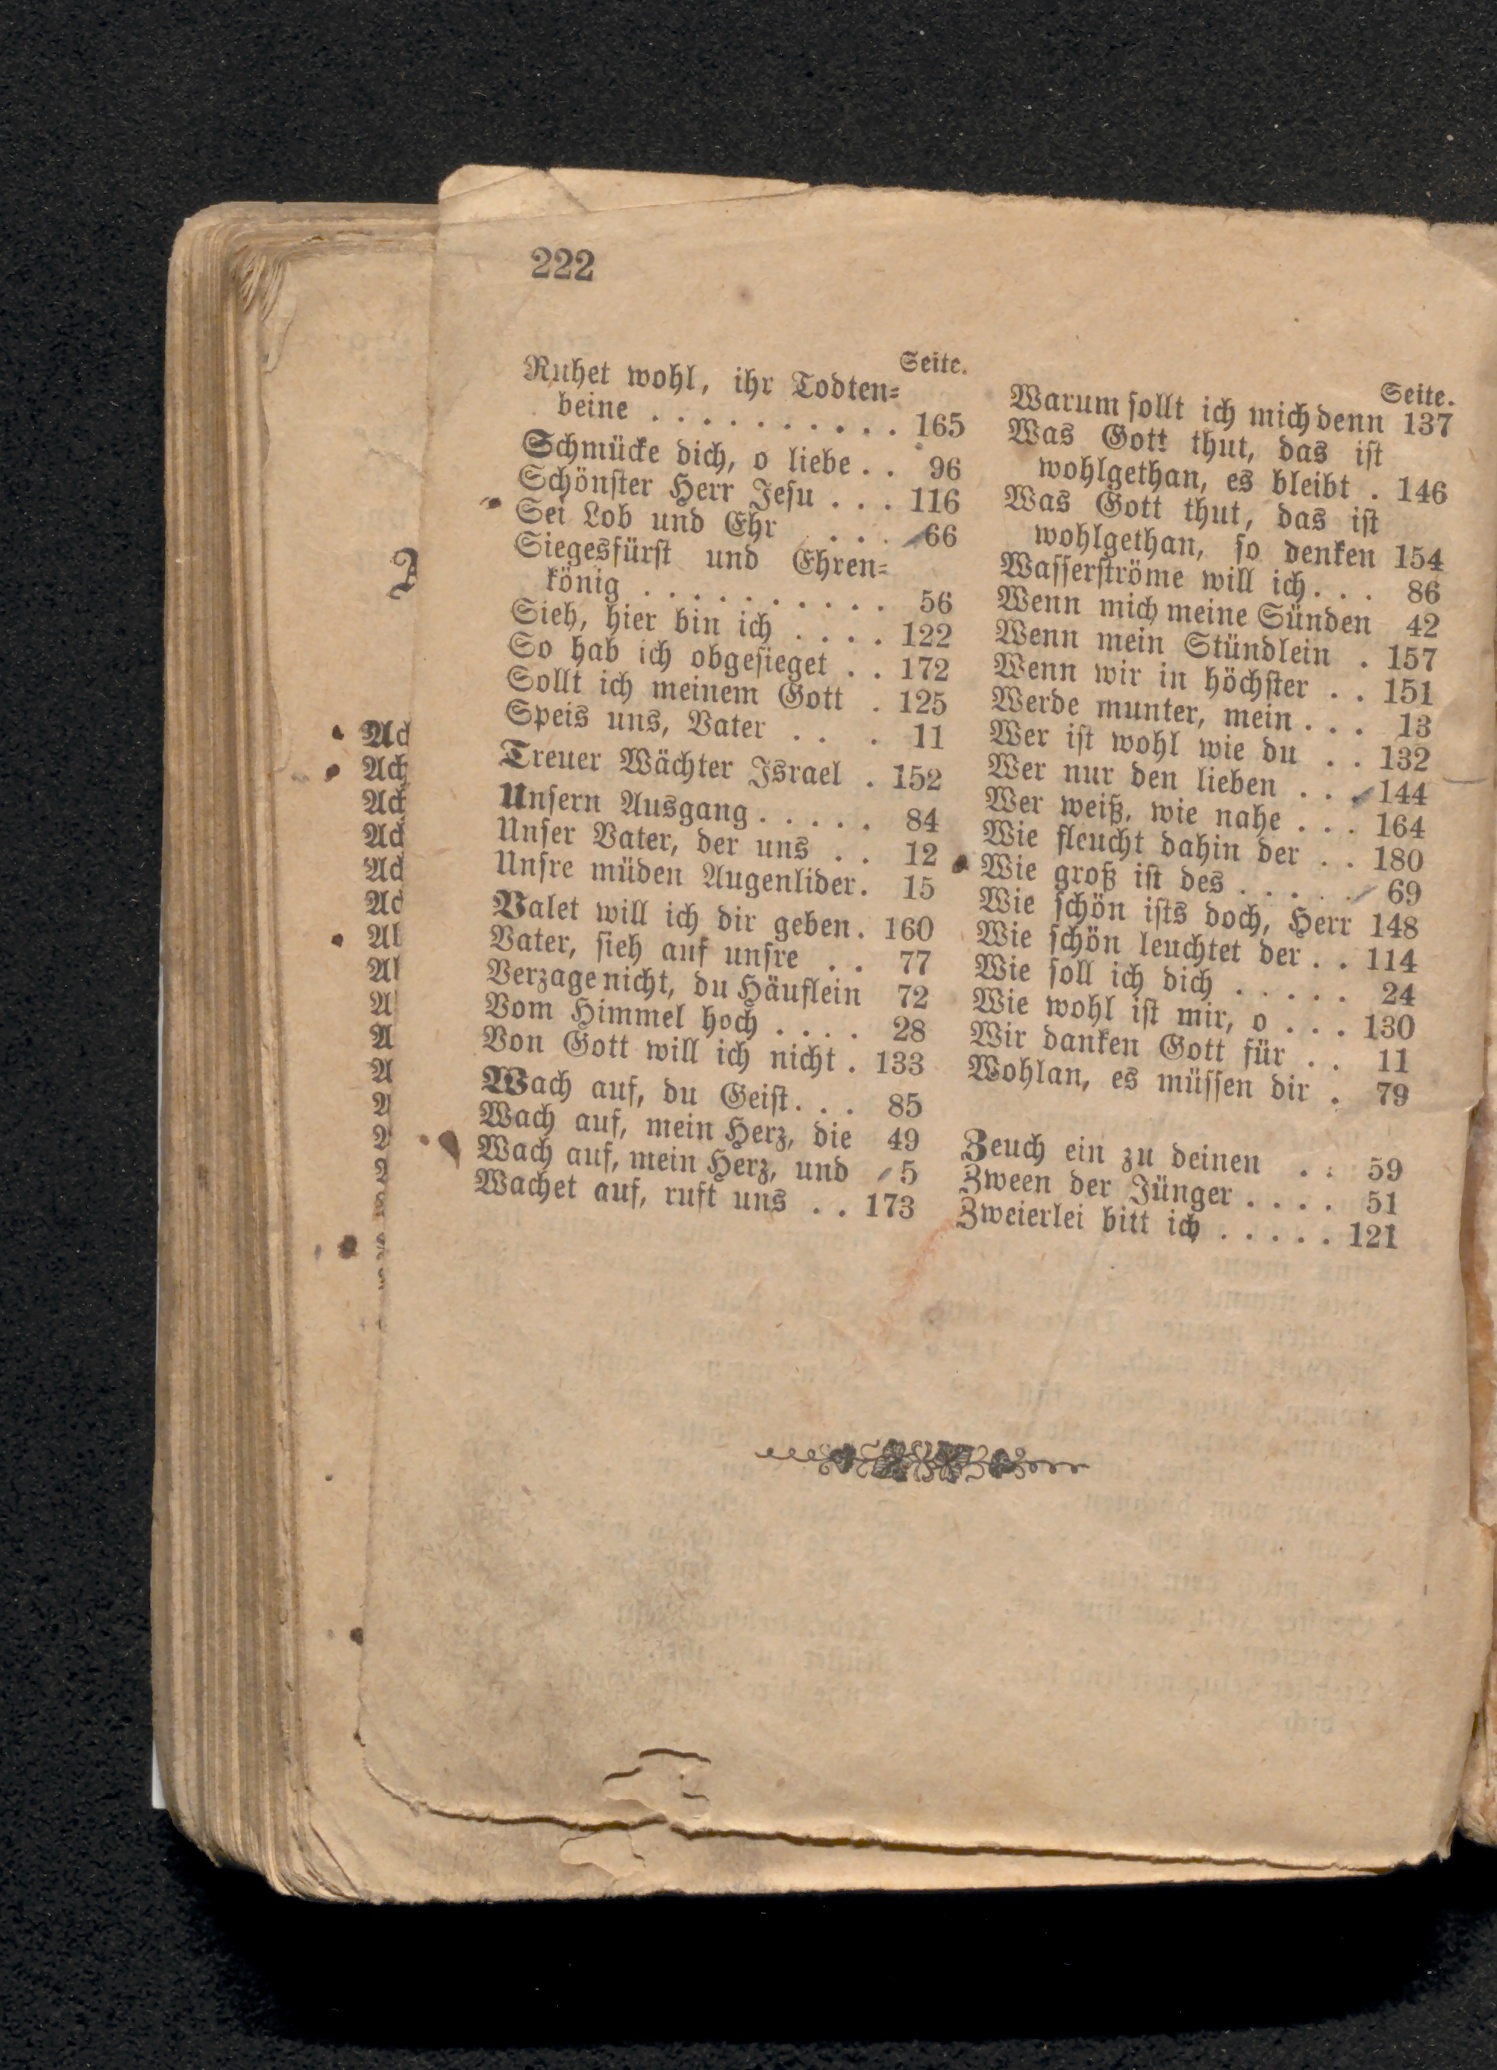 222
Seite.
Ruhet wohl, ihr Todten=
beine . . . . . . . . . . 165
Schmücke dich, o liebe . . 96
Schönster Herr Jesu . . . 116
Sei Lob und Ehr . . . 66
Siegesfürst und Ehren=
könig . . . . . . . . . . 56
Sieh, hier bin ich . . . . 122
So hab ich obgesieget . . 172
Sollt ich meinem Gott . 125
Speis uns, Vater . . . 11
Treuer Wächter Israel . 152
Unsern Ausgang . . . . . 84
Unser Vater, der uns . . 12
Unsre müden Augenlider. 15
Valet will ich dir geben. 160
Vater, sieh auf unsre . . 77
Verzage nicht, du Häuflein 72
Vom Himmel hoch . . . . 28
Von Gott will ich nicht . 133
Wach auf, du Geist. . . 85
Wach auf, mein Herz, die 49
Wach auf, mein Herz, und 5
Wachet auf, ruft uns . . 173
Seite.
Warum sollt ich mich denn 137
Was Gott thut, das ist
wohlgethan, es bleibt . 146
Was Gott thut, das ist
wohlgethan, so denken 154
Wasserströme will ich. . . 86
Wenn mich meine Sünden 42
Wenn mein Stündlein . 157
Wenn wir in höchster . . 151
Werde munter, mein . . . 13
Wer ist wohl wie du . . 132
Wer nur den lieben . . . 144
Wer weiß, wie nahe . . . 164
Wie fleucht dahin der . . 180
Wie groß ist des . . . . . 69
Wie schön ists doch, Herr 148
Wie schön leuchtet der . . 114
Wie soll ich dich . . . . . 24
Wie wohl ist mir, o . . . 130
Wir danken Gott für . . 11
Wohlan, es müssen dir . 79
Zeuch ein zu deinen . . 59
Zween der Jünger . . . . 51
Zweierlei bitt ich . . . . . 121
Ach
Ach
Ach
Al
Al
A
A
A